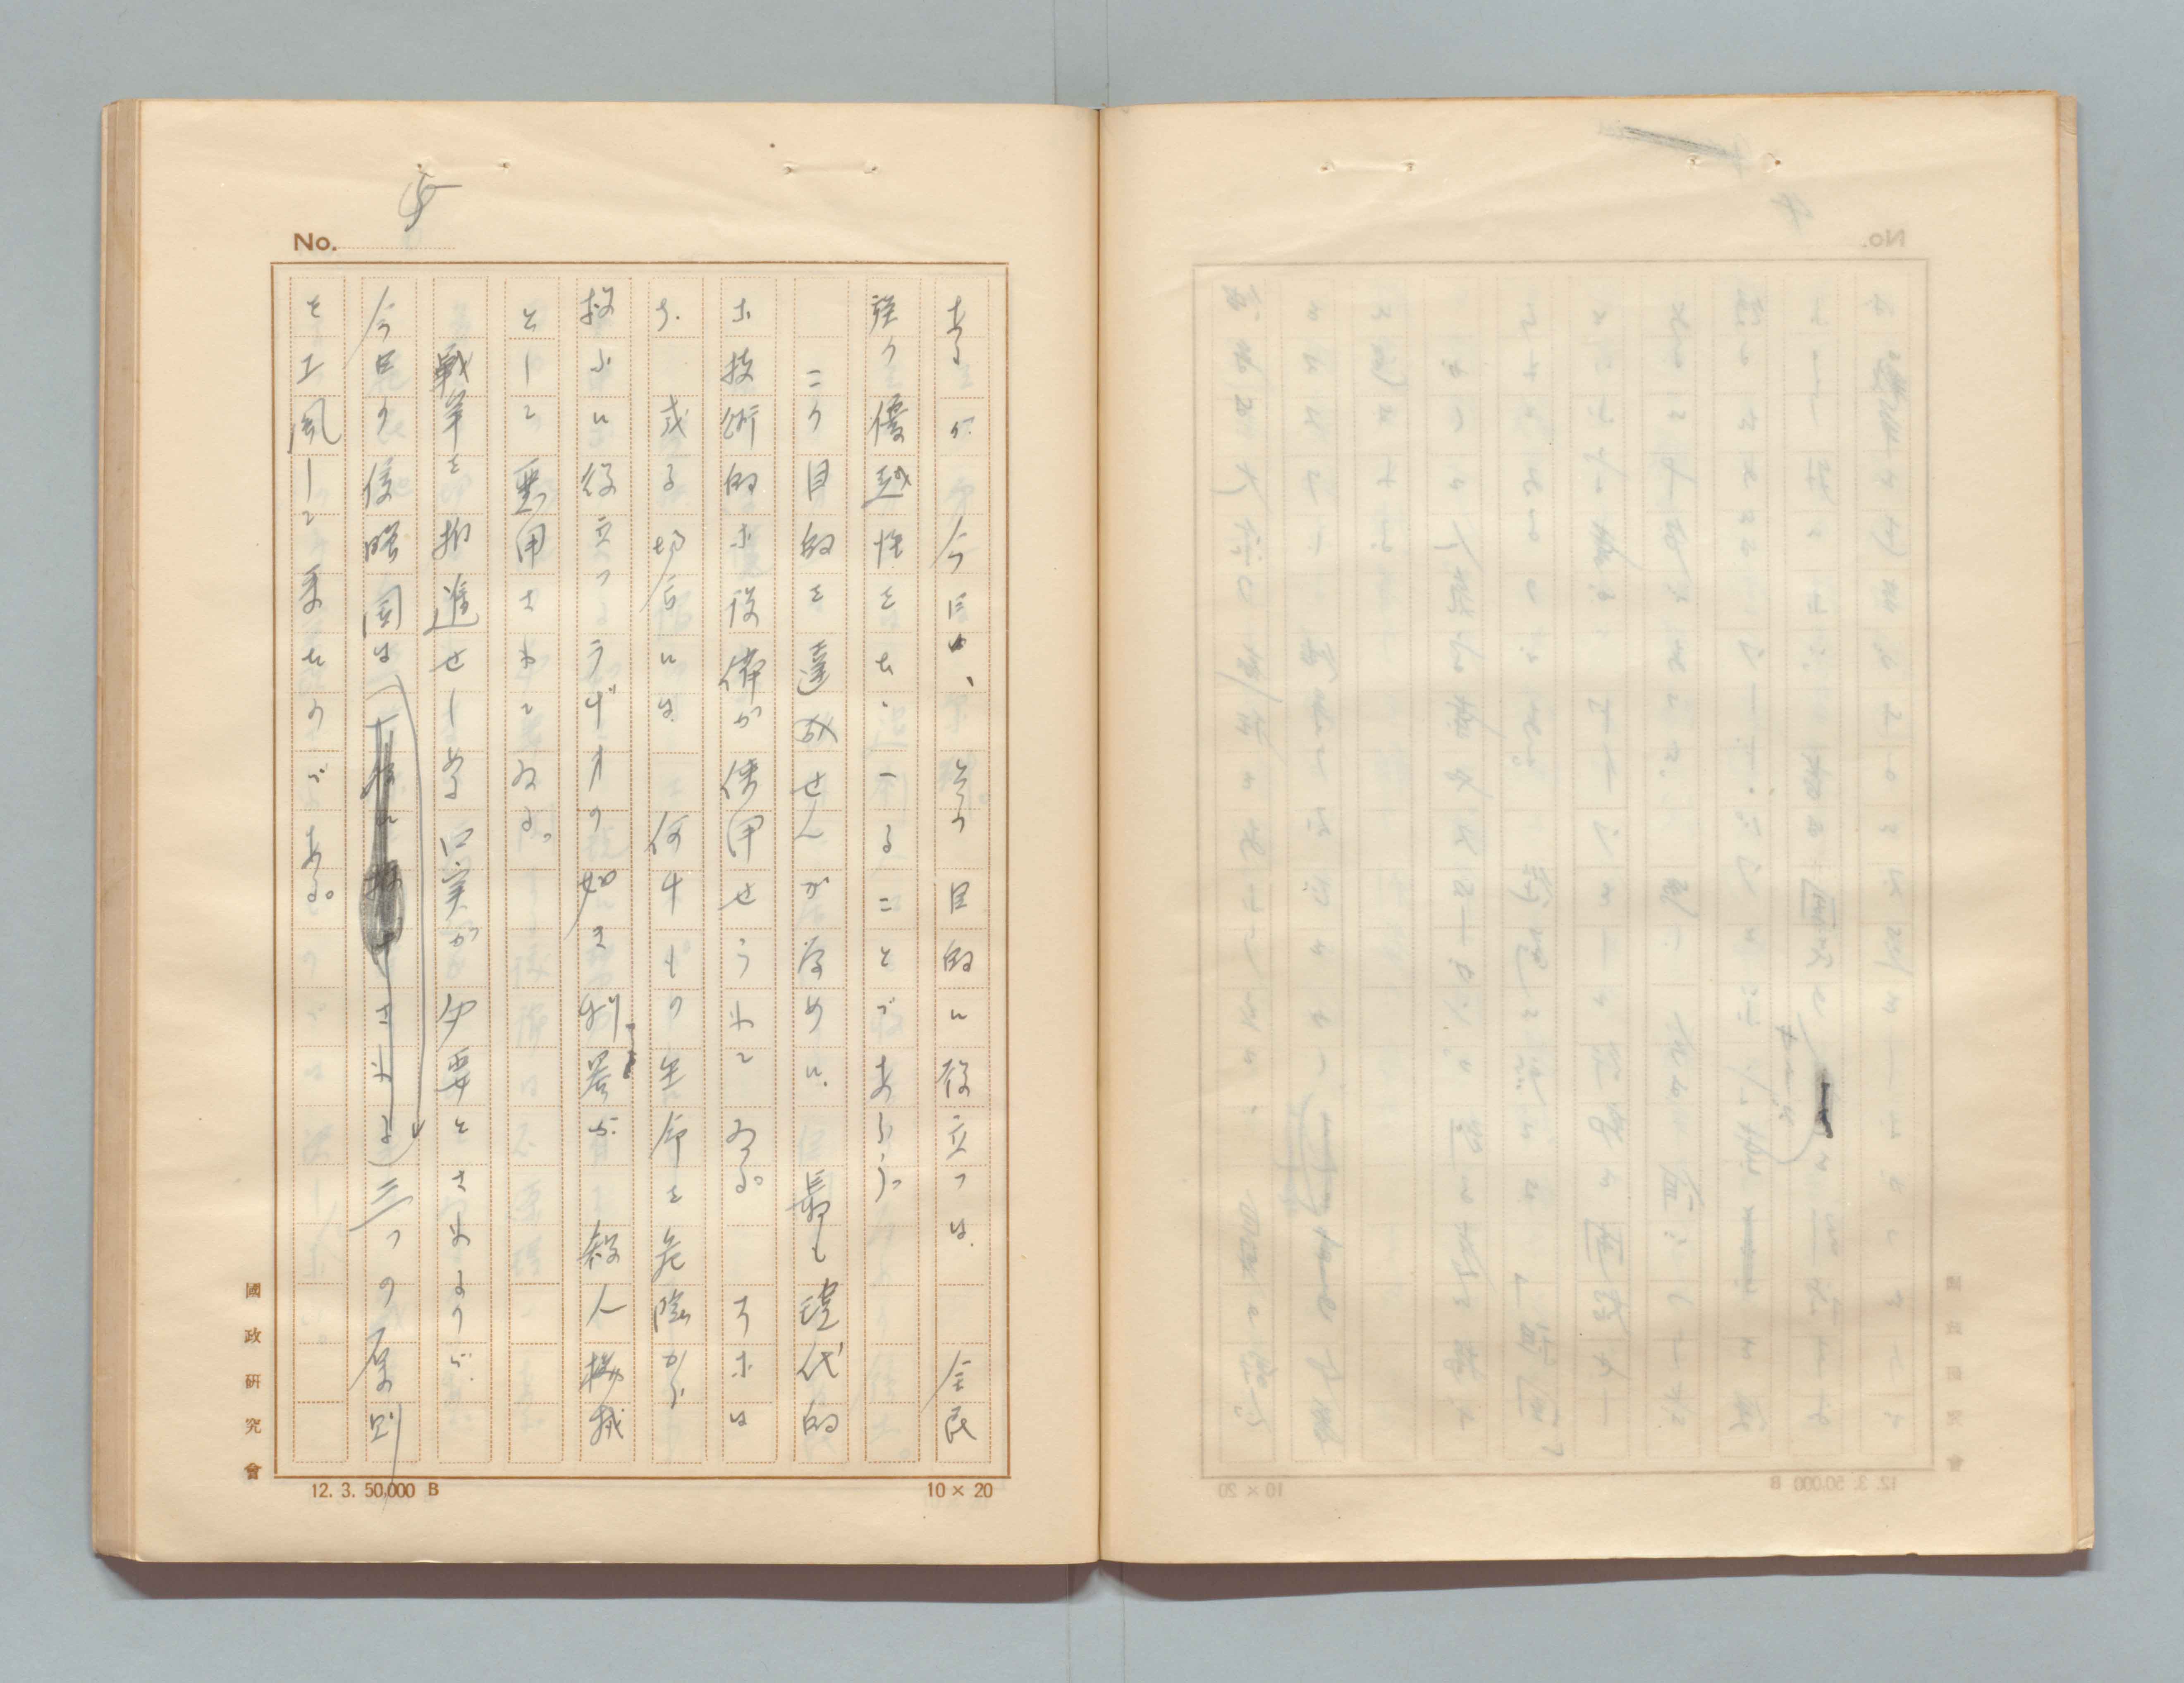 5
No.
あるが、今日は、その目的に役立つは全民
族の優越性をたゝへることであらう。
この目的を達成せんが為めに、最も現代的
な技術的な設備が使用せられてゐる。すなは
ち、或る場合には何千もの生命を危険から
救ふに役立つラヂオの如き利器が殺人機械
として悪用されてゐる。
戦争を推進せしめる口実が必要とされるので、
今日の侵略国は三つの原則
を工風して来たのである。
國政研究會
12. 3. 50,000 B
10 × 20